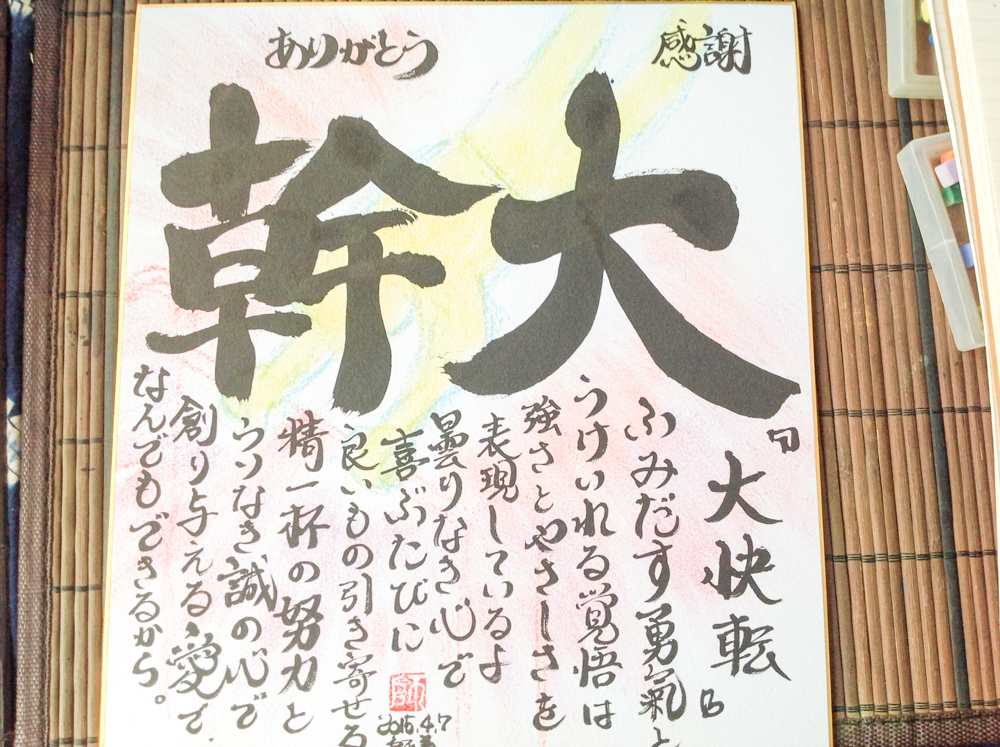 感謝
ありがとう
大幹
『大快転』
ふみだす勇氣と
うけいれる覚悟は
強さとやさしさを
表現しているよ
曇りなき心で
喜ぶたびに
良いもの引き寄せる
精一杯の努力と
うソなき誠の心で
創り与える愛で、
なんでもできるから。
2015.4.7